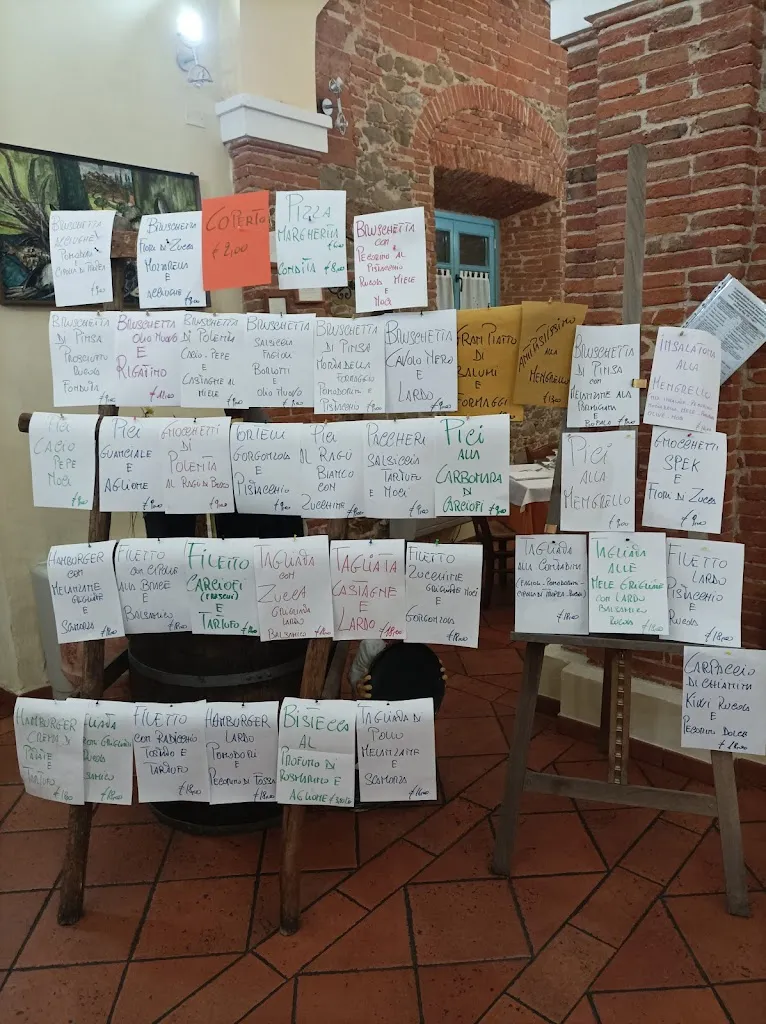 BRUSCHETTA
ACCIUGHE
POMODORO
€ 9,00
BRUSCHETTA
FIORI DI ZUCCA
MOZZARELLA
E
ACCIUGHE
COPERTO
€ 2,00
PIZZA
MARGHERITA
CONDITA € 8,00
BRUSCHETTA
CON
PECORINO AL
PISTACCHIO
RUCOLA MIELE
E
NOCI
BRUSCHETTA
DI PINSA
PROSCIUTTO
RUCOLA
FONDUTA
BRUSCHETTA
OLIO NUOVO
E
RIGATINO
BRUSCHETTA
DI POLENTA
CACIO-PEPE
E
CASTAGNE AL
MIELE
BRUSCHETTA
SALSICCIA
FAGIOLI
E
OLIO NUOVO
BRUSCHETTA
DI PINSA
MORTADELLA
FORMAGGIO
POMODORINI E
PISTACCHIO
BRUSCHETTA
CAVOLO NERO
E
LARDO
GRAN PIATTO
DI
SALUMI
E
FORMAGGI
ANTIPASTISSIMO
ALLA
MENGRELLO
BRUSCHETTA
DI PINSA
CON
MELANZANE ALLA
PARMIGIANA
INSALATONA
ALLA
MENGRELLO
PICI
CACIO
PEPE
NOCI
PICI
GUANCIALE
E
AGLIONE
GNOCCHETTI
DI
POLENTA
AL RAGÙ DI BOSCO
TORTELLI
GORGONZOLA
E
PISTACCHIO
PICI
AL RAGÙ
BIANCO
CON
ZUCCHINE
PACCHERI
SALSICCIA
TARTUFO
E
NOCI
PICI
ALLA
CARBONARA
DI
CARCIOFI € 9,00
PICI
ALLA
MENGRELLO
€ 9,00
GNOCCHETTI
SPEK
E
FIORI DI ZUCCA
€ 9,00
HAMBURGER
CON
MELANZANE
GRIGLIATE
E
SCAMORZA
FILETTO
CON CIPOLLE
ALLA BRACE
E
BALSAMICO
FILETTO
CARCIOFI
(FRESCHI)
E
TARTUFO
TAGLIATA
CON
ZUCCA
GRIGLIATA
LARDO
BALSAMICO
TAGLIATA
CASTAGNE
E
LARDO
€ 18,00
FILETTO
ZUCCHINE
GRIGLIATE NOCI
E
GORGONZOLA
€ 18,00
TAGLIATA
ALLA CONTADINA
TAGLIATA
ALLE
MELE GRIGLIATE
CON LARDO
BALSAMICO
RUCOLA
€ 18,00
FILETTO
LARDO
PISTACCHIO
E
RUCOLA
€ 18,00
CARPACCIO
DI CHIANINA
KIWI RUCOLA
E
PECORINO DOLCE
HAMBURGER
CREMA DI
E
TARTUFO
CON GRIGLIATA
RUCOLA
BALSAMICO
FILETTO
CON RADICCHIO
TARDIVO E
TARTUFO
€ 18,00
HAMBURGER
LARDO
POMODORI
E
PECORINO DI FOSSA
BISTECCA
AL
PROFUMO DI
ROSMARINO E
AGLIONE
TAGLIATA DI
POLLO
MELANZANE
E
SCAMORZA